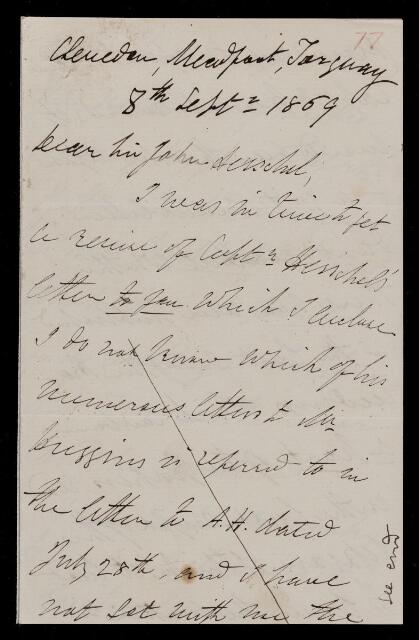 77
Clevedon, Meadfoot, Torquay
8th Septr 1869
Dear Sir John Herschel,
I was in time to get
a revise of Captn Herschel's
letter to you which I enclose
I do not know which of his
numerous letters to Mr
Huggins is referred to in
the letter to A.H. dated
July 28th, and I have
not got with me the
see end